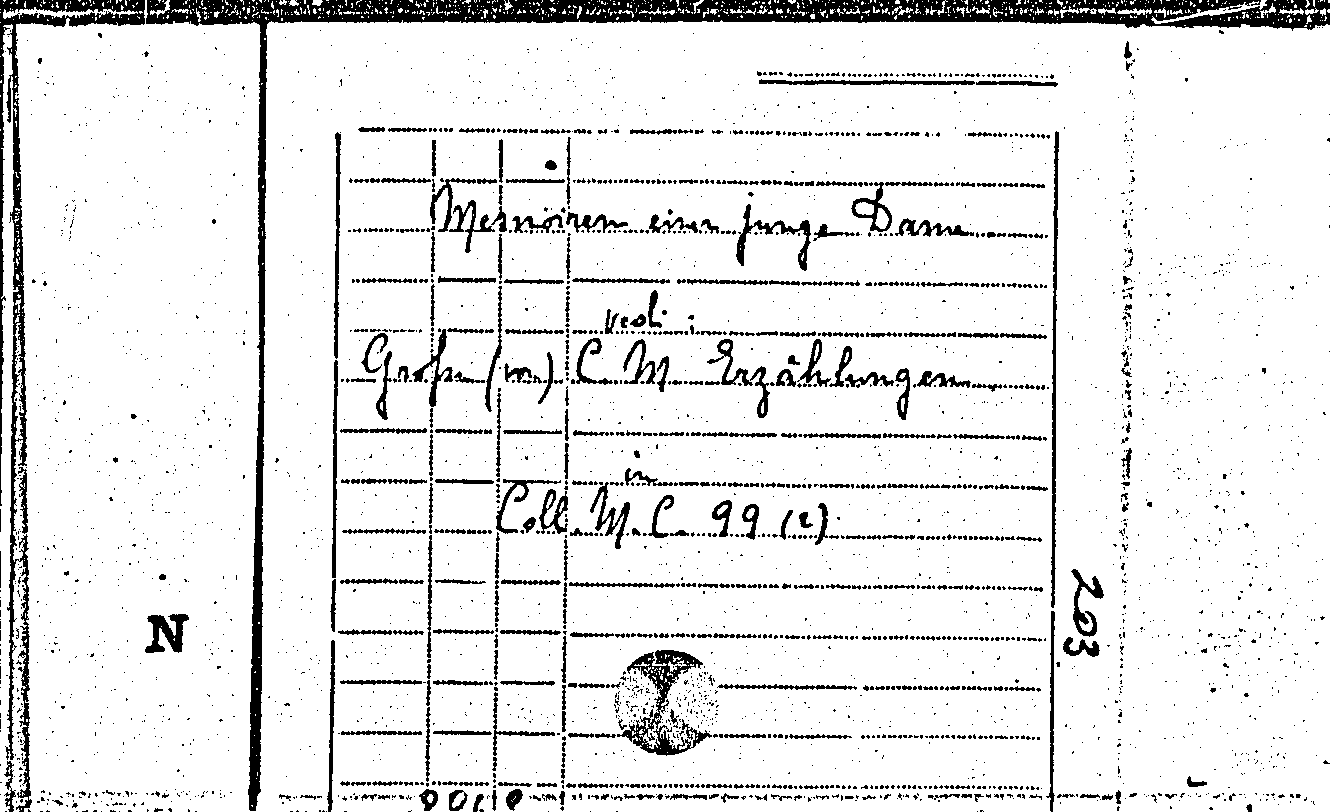 Memoiren einer junge Dame
vedi:
Große (m) C M Erzählungen
in
Coll. M. C. 99 (2)
203
N